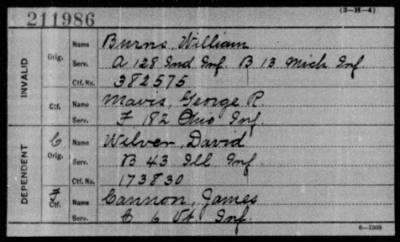 (3-H-4)
211986
INVALID
Orig. Name Burns, William
Serv. A 128 Ind Inf. B 13 Mich Inf
Ctf. No. 382575
Ctf. Name Mavis, George R.
Serv. F 182 Ohio Inf.
DEPENDENT
C
Orig. Name Wilver, David
Serv. B 43 Ill Inf
Ctf. No. 173830
Ctf. Name Cannon, James
Serv. C 6 Vt. Inf.